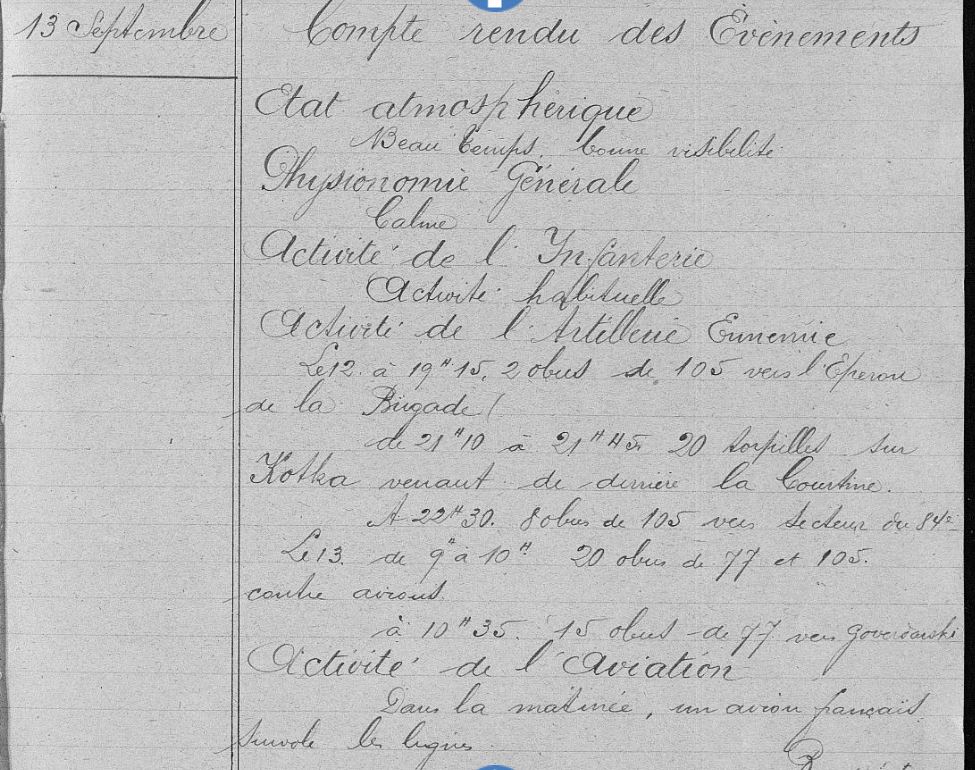 13 Septembre
Compte rendu des Évènements
Etat atmosphérique
Beau temps. bonne visibilité
Physionomie Générale
Calme
Activité de l'Infanterie
Activité habituelle
Activité de l'Artillerie Ennemie
Le 12. à 19H15, 2 obus de 105 vers l'Eperon
de la Brigade (
de 21H10 à 21H45 20 torpilles sur
Kotka venant de derrière la Courtine.
A 22H30. 8 obus de 105 vers secteur du 84e
Le 13. de 9H à 10H 20 obus de 77 et 105.
contre avions
à 10H35. 15 obus de 77 vers
Activité de l'Aviation
Dans la matinée, un avion français
survole les lignes